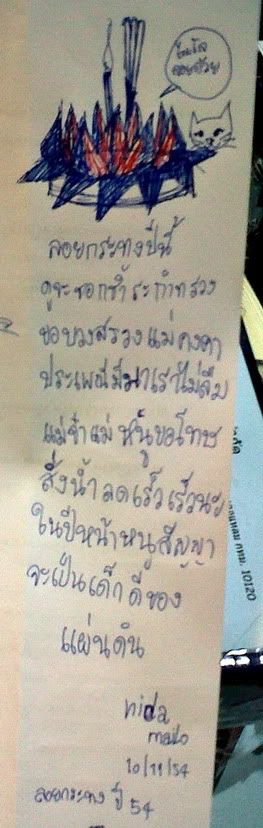 ลอยกระทงปีนี้
ดูจะชอกช้ำระกำทรวง
ขอบวงสรวงแม่คงคา
ประเพณีมีมาเราไม่ลืม
แม่จ๋าแม่หนูขอโทษ
สั่งน้ำลดเร็วเร็วนะ
ในปีหน้าหนูสัญญา
จะเป็นเด็กดีของ
แผ่นดิน
nida
10/11/54
ลอยกระทง ปี 54
กทม. 10120